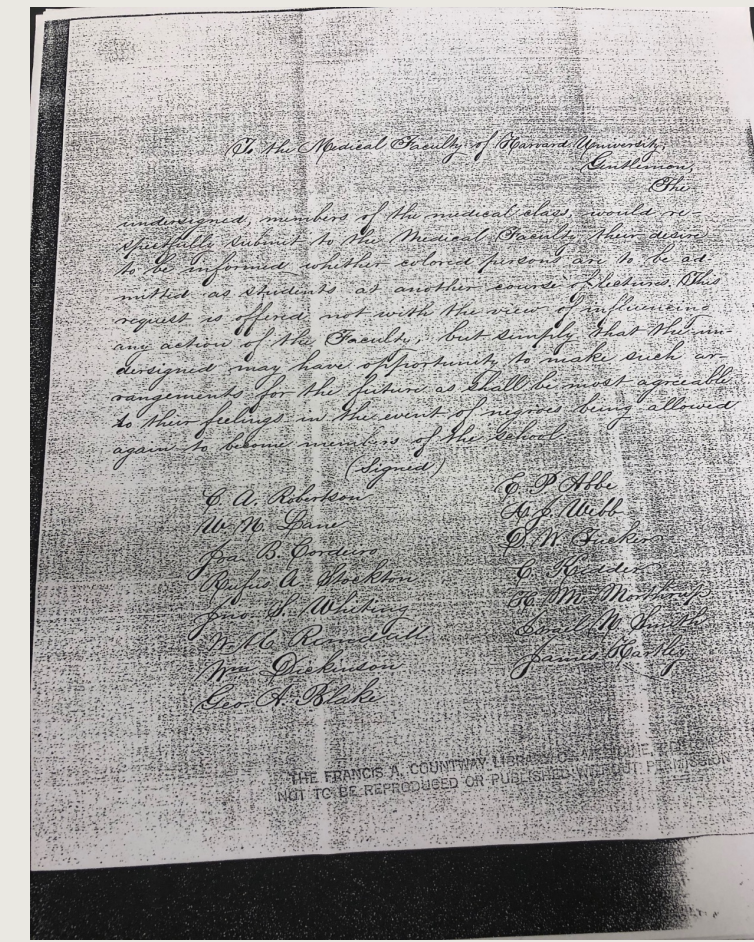 To the Medical Faculty of Harvard University,
Gentlemen,
The
undersigned, members of the medical class, would re-
spectfully submit to the Medical Faculty their desire
to be informed whether colored persons are to be ad-
mitted as students at another course of lectures. This
request is offered not with the view of influencing
any action of the Faculty, but simply that the un-
dersigned may have opportunity to make such ar-
rangements for the future as shall be most agreeable
to their feelings in the event of negroes being allowed
again to become members of the school.
(Signed)
C. A. Robertson
W. H. Lane
B. Cordeiro
Rufus A. Stockton
Jno. S. Whiting
Wm Dickinson
Geo. A. Blake
E. P. Abbe
J. Webb
W.
C. Kidder
H. M. Northrup
Daniel N. Smith
James Hartley
THE FRANCIS A. COUNTWAY LIBRARY OF MEDICINE, BOSTON
NOT TO BE REPRODUCED OR PUBLISHED WITHOUT PERMISSION